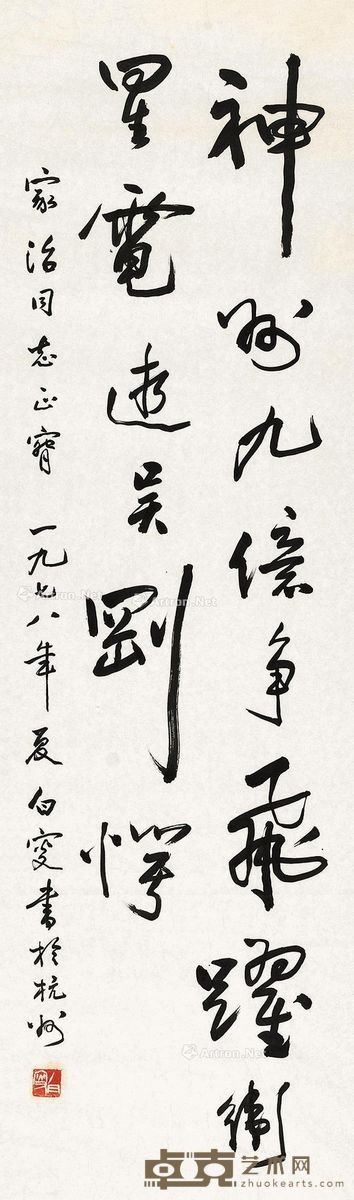 神州九億争飛躍衛
星電逝吴剛愕
家治同志正 一九七八年夏白書於杭州
Artron.Net
Artron.Net
Artron.Net
卓克艺术网
zhuokearts.com